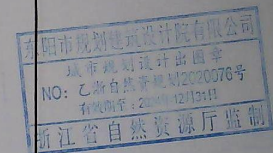 东阳市规划建筑设计院有限公司
城市规划设计出图章
NO：乙浙自然资规划2020076号
有效期至：12月31日
浙江省自然资源厅监制